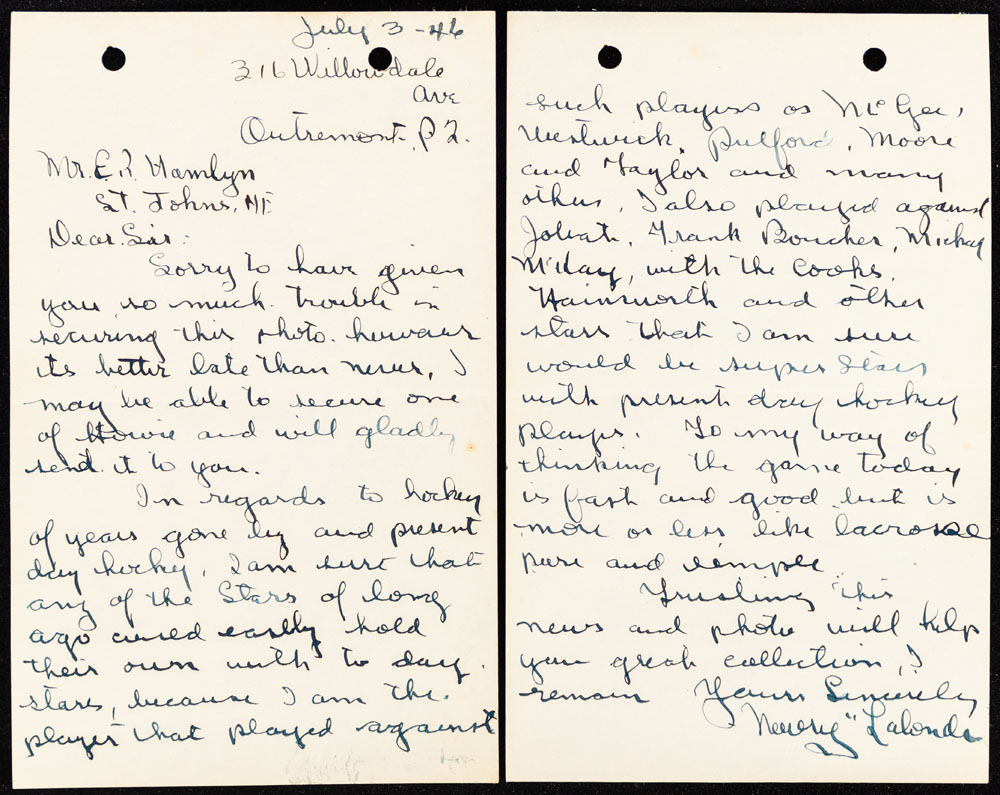 July 3 - 46
316 Willowdale
Ave
Outremont. P 2.
Mr. E. R. Hamlyn
St. Johns, NF.
Dear. Sir:
Sorry to have given
you so much trouble in
securing this photo. however
its better late than never, I
may be able to secure one
of Howie and will gladly
send it to you.
In regards to hockey
of years gone by and present
day hockey, I am sure that
any of the Stars of long
ago could easily hold
their own with to day.
stars, because I am the
player that played against
such players as McGee,
Westwick, Pulford, Moore
and Taylor and many
others, I also played against
Joliat, Frank Boucher, Mickey
McKay, with the Cooks,
Hainsworth and other
stars that I am sure
would be super stars
with present day hockey
players. To my way of
thinking the game today
is fast and good but is
more or less like lacrosse
pure and simple
Trusting this
news and photo will help
your great collection, I
remain Yours Sincerely
"Newsy" Lalonde